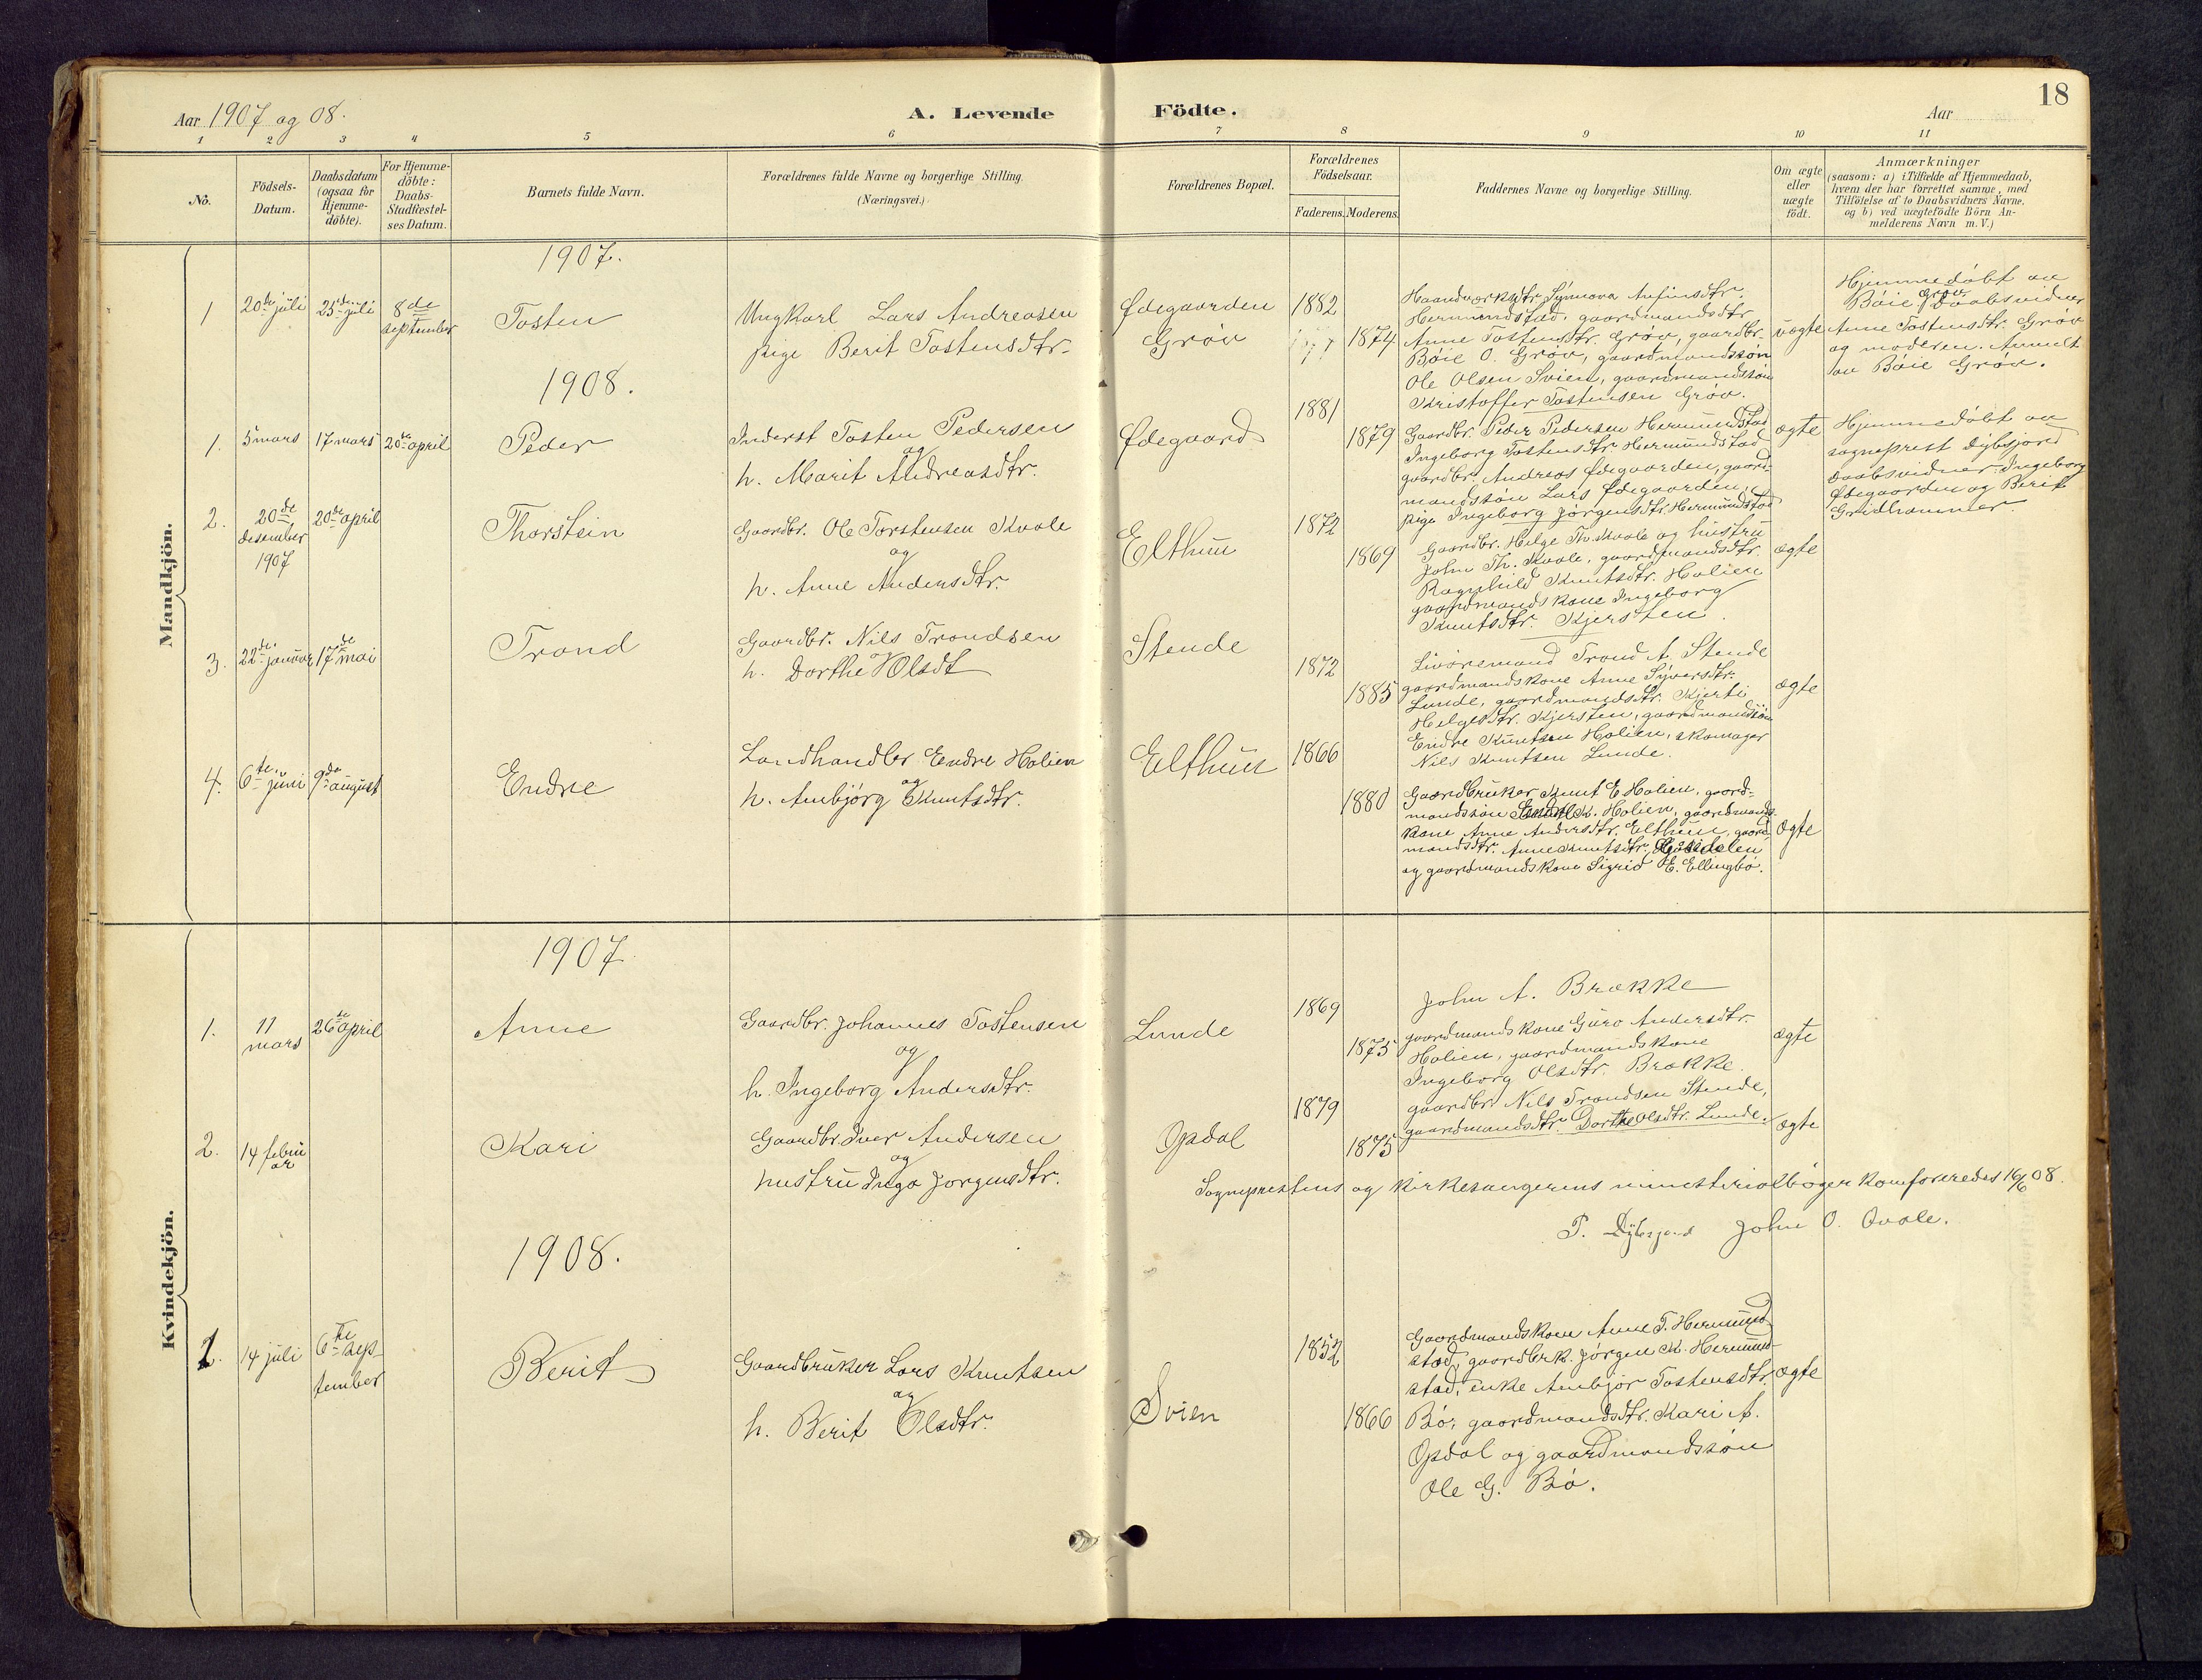 18
Aar 1907 og 08.
A. Levende Födte.
Aar
1 2 3 4 5 6 7 8 9 10 11
No.
Födsels-
Datum.
Daabsdatum
(ogsaa for
Hjemme-
döbte).
For Hjemme-
döbte:
Daabs-
Stadfæstel-
ses Datum.
Barnets fulde Navn.
Forældrenes fulde Navne og borgerlige Stilling
(Næringsvei.)
Forældrenes Bopæl.
Forældrenes
Födselsaar.
Faderens. Moderens.
Faddernes Navne og borgerlige Stilling.
Om ægte
eller
uægte
födt.
Anmærkninger
(saasom: a) i Tilfælde af Hjemmedaab,
hvem der har forrettet samme, med
Tilföielse af to Daabsvidners Navne,
og b) ved uægtefödte Börn An-
melderens Navn m. V.)
Mandkjön.
1907.
1
20de juli
25de juli
8de
september
Tosten
Ungkarl Lars Andreasen
pige Berit Tostensdtr.
Ødegaarden
Grøv
1882
1874
Haandverksdtr. Synnova Anfinsdtr.
Hermundstad, gaardmandsdtr
Anne Tostensdtr. Grøv, gaardbr.
Bøie O. Grøv, gaardmandssøn
Ole Olsen Svien, gaardmandssøn
Kristoffer Tostensen Grøv.
uægte
Hjemmedøbt av
Bøie Grøv, Daabsvidner
Anne Tostensdtr. Grøv
og moderen. Anmeldt
av Bøie Grøv.
1908.
1.
5 mars
17 mars
20de april
Peder
Inderst Tosten Pedersen
og
h. Marit Andreasdtr.
Ødegaard
1881
1879
Gaardbr. Peder Pedersen Hermundstad
Ingeborg Tostensdtr. Hermundstad
gaardbr. Andreas Ødegaarden, gaard-
mandssøn Lars Ødegaarden,
pige Ingeborg Jørgensdtr. Hermundstad
ægte
Hjemmedøbt av
sogneprest Dybsjord
Daabsvidner: Ingeborg
Ødegaarden og Berit
Gridhammer.
2.
20de
desember
1907
20de april
Thorstein
Gaardbr. Ole Torstensen Kvale
og
h. Anne Andersdtr.
Elthun
1872
1869
Gaardbr. Helge Th. Kvale og hustru
John Th. Kvale, gaardmandsdtr.
Ragnhild Knutsdtr. Holien
gaardmandskone Ingeborg
Knutsdtr. Kjersten.
ægte
3.
22de januar
17de mai
Trond
Gaardbr. Nils Trondsen
og
h. Dorthe Olsdt
Stende
1872
1885
Livøremand Trond A. Stende
gaardmandskone Anne Syversdtr.
Lunde, gaardmandsdtr. Kjersti
Helgesdtr. Kjersten, gaardmandssøn
Endre Knutsen Holien, skomager
Nils Knutsen Lunde.
ægte
4.
6te juni
9de august
Endre
Landhandler Endre Holien
og
h. Ambjørg Knutsdtr.
Elthun
1866
1880
Gaardbruker Knut E Holien, gaard-
mandssøn K. Holien, gaardmands-
kone Anne Andersdtr. Elthun, gaard-
mandsdtr. Anne Knutsdtr.
og gaardmandskone Sigrid E. Ellingbø.
ægte
Kvindekjön.
1907
1.
11
mars
26de april
Anne
Gaardbr. Johannes Tostensen
og
h. Ingeborg Andersdtr.
Lunde
1869
1875
John A. Brække
gaardmandskone Guro Andersdtr.
Holien, gaardmandskone
Ingeborg Olsdtr. Brække.
gaardbr. Nils Trondsen Stende,
gaardmandsdtr. Dorthe Olsdtr. Lunde.
ægte
2.
14 febru
ar
Kari
Gaardbr. Iver Andersen
og
hustru Inga Jørgensdtr.
Opdal
1879
1875
ægte
Sogneprestens og kirkesangerens ministerialbøger komfereredes 16/6 08.
P. Dybsjord John O. Qvale.
1908.
1.
14 juli
6te sep-
tember
Berit
Gaardbruker Lars Knutsen
og
h. Berit Olsdtr.
Svien
1852
1866
Gaardmandskone Anne T. Hermund-
stad, gaardbrk. Jørgen K. Hermund-
stad, enke Ambjør Tostensdtr.
Bø, gaardmandsdtr. Kari A.
Opdal og gaardmandssøn
Ole G. Bø.
ægte